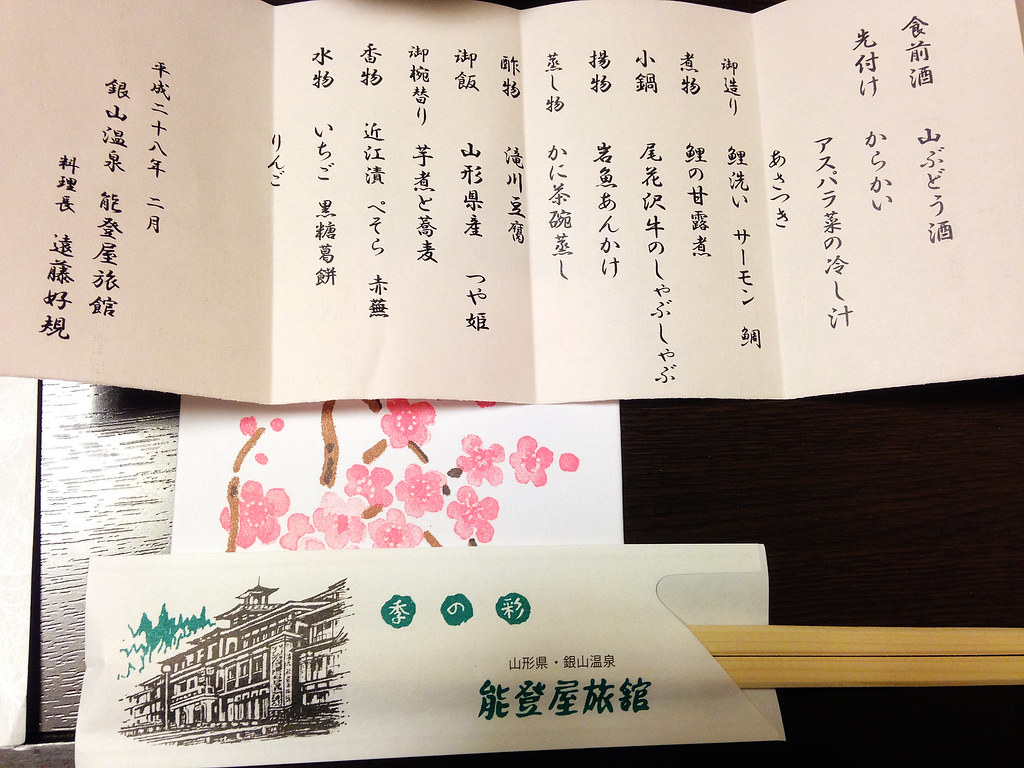 食前酒 山ぶどう酒
先付け からかい
アスパラ菜の冷し汁
あさつき
御造り 鯉洗い サーモン 鯛
煮物 鯉の甘露煮
小鍋 尾花沢牛のしゃぶしゃぶ
揚物 岩魚あんかけ
蒸し物 かに茶碗蒸し
酢物 滝川豆腐
御飯 山形県産 つや姫
御椀替り 芋煮と蕎麦
香物 近江漬 ぺそら 赤蕪
水物 いちご 黒糖葛餅
りんご
平成二十八年 二月
銀山温泉 能登屋旅館
料理長 遠藤好規
季の彩
山形県・銀山温泉
能登屋旅館